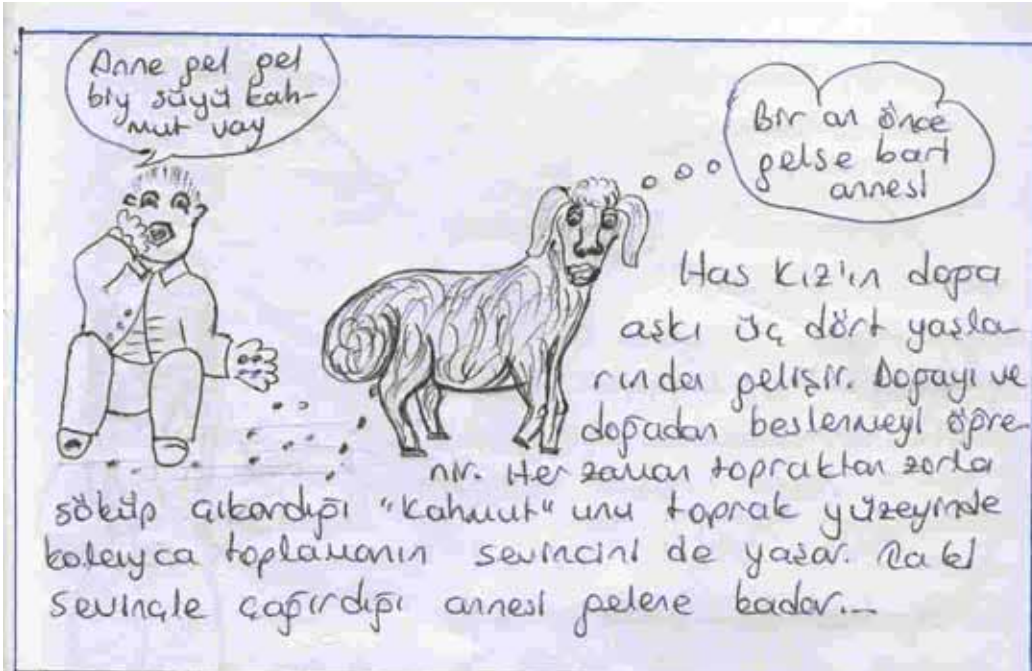 Anne gel gel
biy süyü kah-
mut vay
Bir an önce
gelse bari
annesi
Has Kız'ın doğa
aşkı üç dört yaşla-
rında gelişir. Doğayı ve
doğadan beslenmeyi öğre-
nir. Her zaman topraktan zorla
söküp çıkardığı "Kahmut" unu toprak yüzeyinde
kolayca toplamanın sevincini de yaşar. Ta ki
sevinçle çağırdığı annesi gelene kadar...